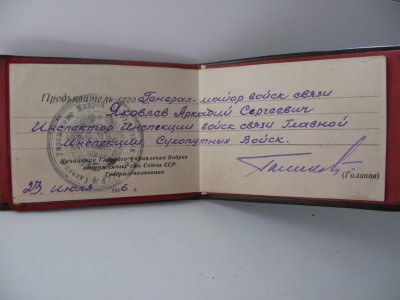 Предъявитель сего Генерал-майор войск связи
Яковлев Аркадий Сергеевич
Инспектор Инспекции войск связи Главной
Инспекции Сухопутных Войск.
Начальник Главного Управления Кадров
вооруженных сил Союза ССР
Генерал-полковник
(Голиков)
23 июля 1946 г.